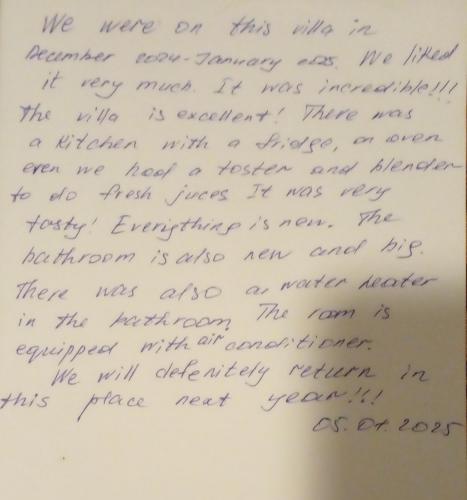 We were on this villa in
December 2024-January 2025. We liked
it very much. It was incredible!!!
The villa is excellent! There was
a kitchen with a fridge, an oven
even we had a toster and blender
to do fresh juces. It was very
tasty! Everigthing is new. The
bathroom is also new and big.
There was also a water heater
in the bathroom. The room is
equipped with air conditioner.
We will defenitely return in
this place next year!!!
05.01.2025